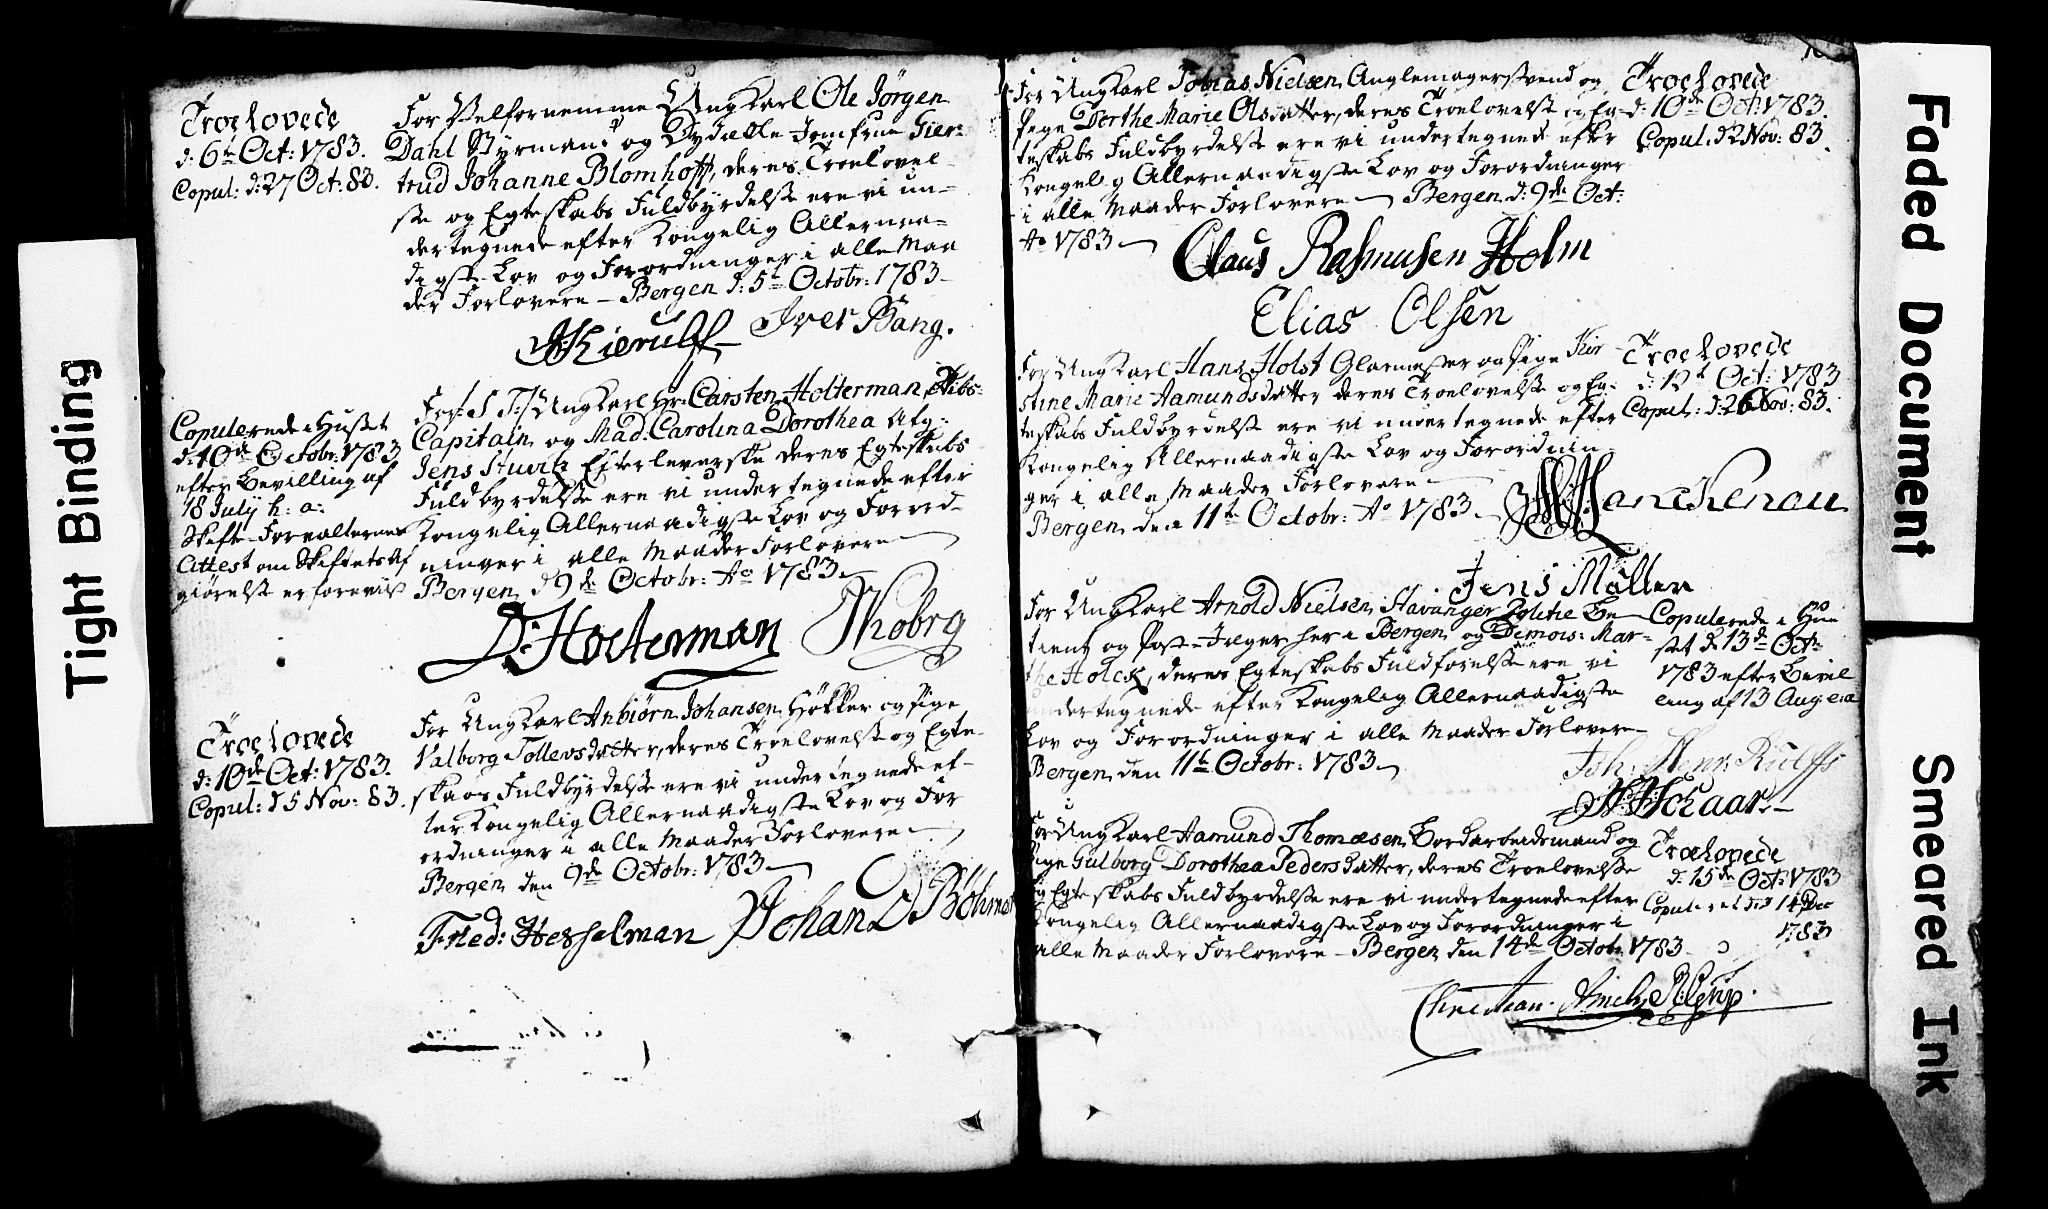 Tight Binding
Troelovede
d: 6te Oct: 1783.
Copul: d: 27 Oct: 83.
For Velfornemme Ung Karl Ole Jörgen
Dahl Styrmand og Dydædle Jomfrue Gier-
trud Johanne Blomhoff, deres Troelovel-
se og Egteskabs Fuldbyrdelse ere vi un-
dertegnede efter Kongelig Allernaa-
digste Lov og Forordninger i alle Maa
der Forlovere – Bergen d: 5te Octobr: 1783 –
Kierulff Iver Bang.
Copulerede i Huset
d: 10de Octobr: 1783
efter Bevilling af
18 July h: a:
Skifte-Forvalternes
Attest om Skiftets Af
giörelse er foreviist
For S: T: Ung Karl Hr: Carsten Holterman, Skibs-
Capitain, og Mad. Carolina Dorothea Afg:
Jens Stuvitz Efterleverske deres Egteskabs
Fuldbyrdelse ere vi undertegnede efter
Kongelig Allernaadigste Lov og Forord-
ninger i alle Maader Forlovere –
Bergen d 9de Octobr: Ao 1783 –
D: Holterman
Troelovede
d: 10de Oct: 1783.
Copul: d 5 Nov: 83.
For Ung Karl Anbiörn Johansen Høkker og Pige
Valborg Tollevsdatter, deres Troelovelse og Egte-
skabs Fuldbyrdelse ere vi undertegnede ef-
ter Kongelig Allernaadigste Lov og For
ordninger i alle Maader Forlovere –
Bergen den 9de Octobr: 1783 –
Fried: Hesselman Johan D Böhmer
For Ung Karl Tobias Nielsen, Anglemagersvend og
Pige Dorthe Marie Olsdatter, deres Troelovelse og Eg-
teskabs Fuldbyrdelse ere vi undertegnede efter
Kongelig Allernaadigste Lov og Forordninger
i alle Maader Forlovere – Bergen d: 9de Oct:
Ao 1783 –
Troelovede
d: 10de Oct: 1783.
Copul: d 2 Nov: 83.
Claus Rasmusen Holm
Elias Olsen
For Ung Karl Hans Holst Glarmester og Pige Kir-
stine Marie Aamundsdatter deres Troelovelse og Eg-
teskabs Fuldbyrdelse ere vi undertegnede efter
Kongelig Allernaadigste Lov og Forordnin-
ger i alle Maader Forlovere –
Bergen den 11te Octobr: Ao 1783 –
Troelovede
Oct: 1783
Copul: d: 26 Nov: 83.
Jens Möller
For Ung Karl Arnold Nielsen Stavanger Politie Be-
tient og Post-Jæger her i Bergen og Dimois: Mar-
the Holck, deres Egteskabs Fuldförelse ere vi
undertegnede efter Kongelig Allernaadigste
Lov og Forordninger i alle Maader Forlovere –
Bergen den 11te Octobr: 1783 –
Copulerede i Huu
set d 13de Oct:
1783 efter Bevil
ling af 13 Aug: e: a
Joh: Henr: Rülffs
For Ung Karl Aamund Thomæsen Bordarbeidsmand og
Pige Gulborg Dorothea Pedersdatter, deres Troelovelse
og Egteskabs Fuldbyrdelse ere vi undertegnede efter
Kongelig Allernaadigste Lov og Forordninger i
alle Maader Forlovere – Bergen den 14de Octobr 1783 –
Troelovede
d: 15de Oct: 1783
14 Dec
1783
Christian
Faded Document
Smeared Ink